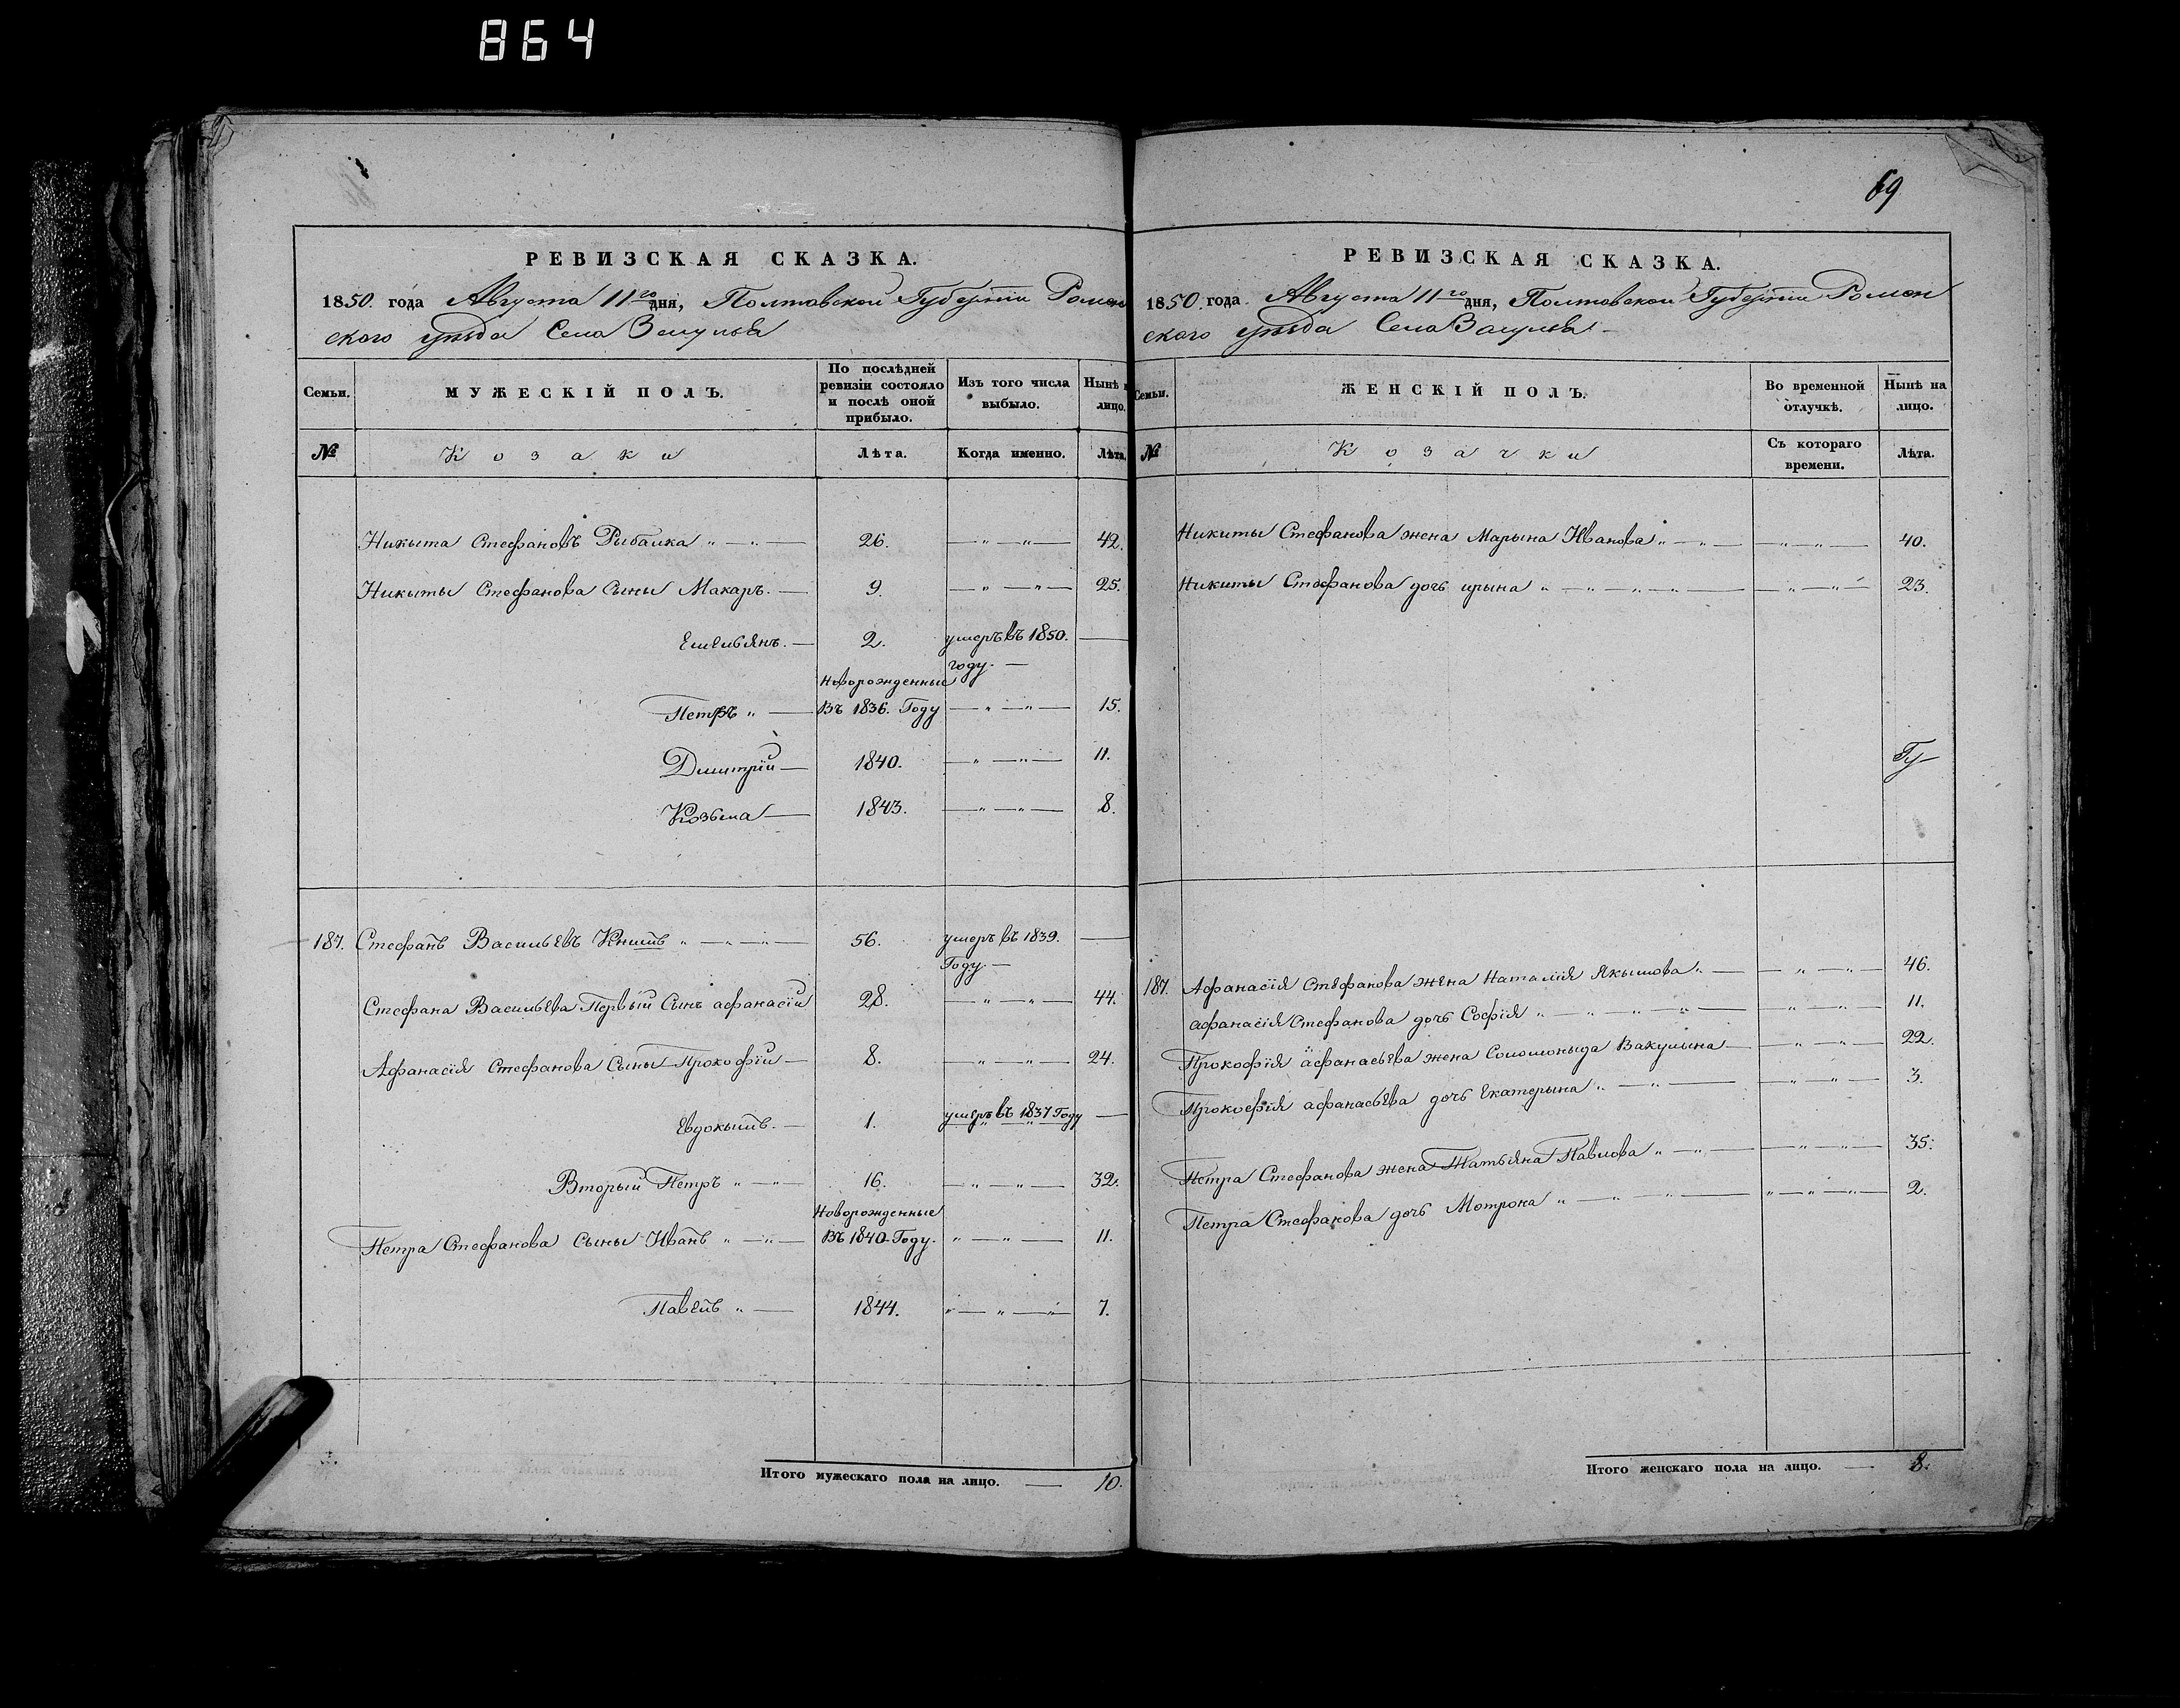 864
РЕВИЗСКАЯ СКАЗКА.
1850. года Августа 11го дня, Полтавской Губерніи Ромен
ского уѣзда Села Засулья
Семьи. МУЖЕСКІЙ ПОЛЪ. По послѣдней ревизіи состояло и послѣ оной прибыло. Изъ того числа выбыло. Нынѣ лицо.
№ Козаки Лѣта. Когда именно. Лѣта.
Никыта Стефановъ Рыбалка 26. 42.
Никыты Стефанова Сыны Макаръ. 9. 25.
Емельянъ. 2. умеръ въ 1850. году.
Новорожденные
Петръ въ 1836. Году 15.
Дмитрій 1840. 11.
Козьма 1843. 8.
187. Стефанъ Васильевъ Книшъ 56. умеръ въ 1839. Году.
Стефана Васильева Первый Сынъ афанасій 28. 44.
Афанасія Стефанова Сыны Прокофій 8. 24.
Евдокымъ. 1. умеръ въ 1837 Году
Вторый Петръ 16. 32.
Новорожденные
Петра Стефанова Сыны Иванъ Въ 1840 Году. 11.
Павелъ 1844. 7.
Итого мужескаго пола на лицо. 10.
69
РЕВИЗСКАЯ СКАЗКА.
1850. года Августа 11го дня, Полтавской Губерніи Ромен
ского уѣзда Села Засулья
Семьи. ЖЕНСКІЙ ПОЛЪ. Во временной отлучкѣ. Нынѣ на лицо.
№ Козачки Съ котораго времени. Лѣта.
Никиты Стефанова жена Марына Иванова 40.
Никиты Стефанова дочь ирына 23.
187. Афанасія Стефанова жена Наталія Якымова 46.
афанасія Стефанова дочь Софія 11.
Прокофія афанасьева жена Соломоныда Вакулына 22.
Прокофія афанасьева дочь Екатерына 3.
Петра Стефанова жена Татьяна Павлова 35.
Петра Стефанова дочь Мотрона 2.
Итого женскаго пола на лицо. 8.